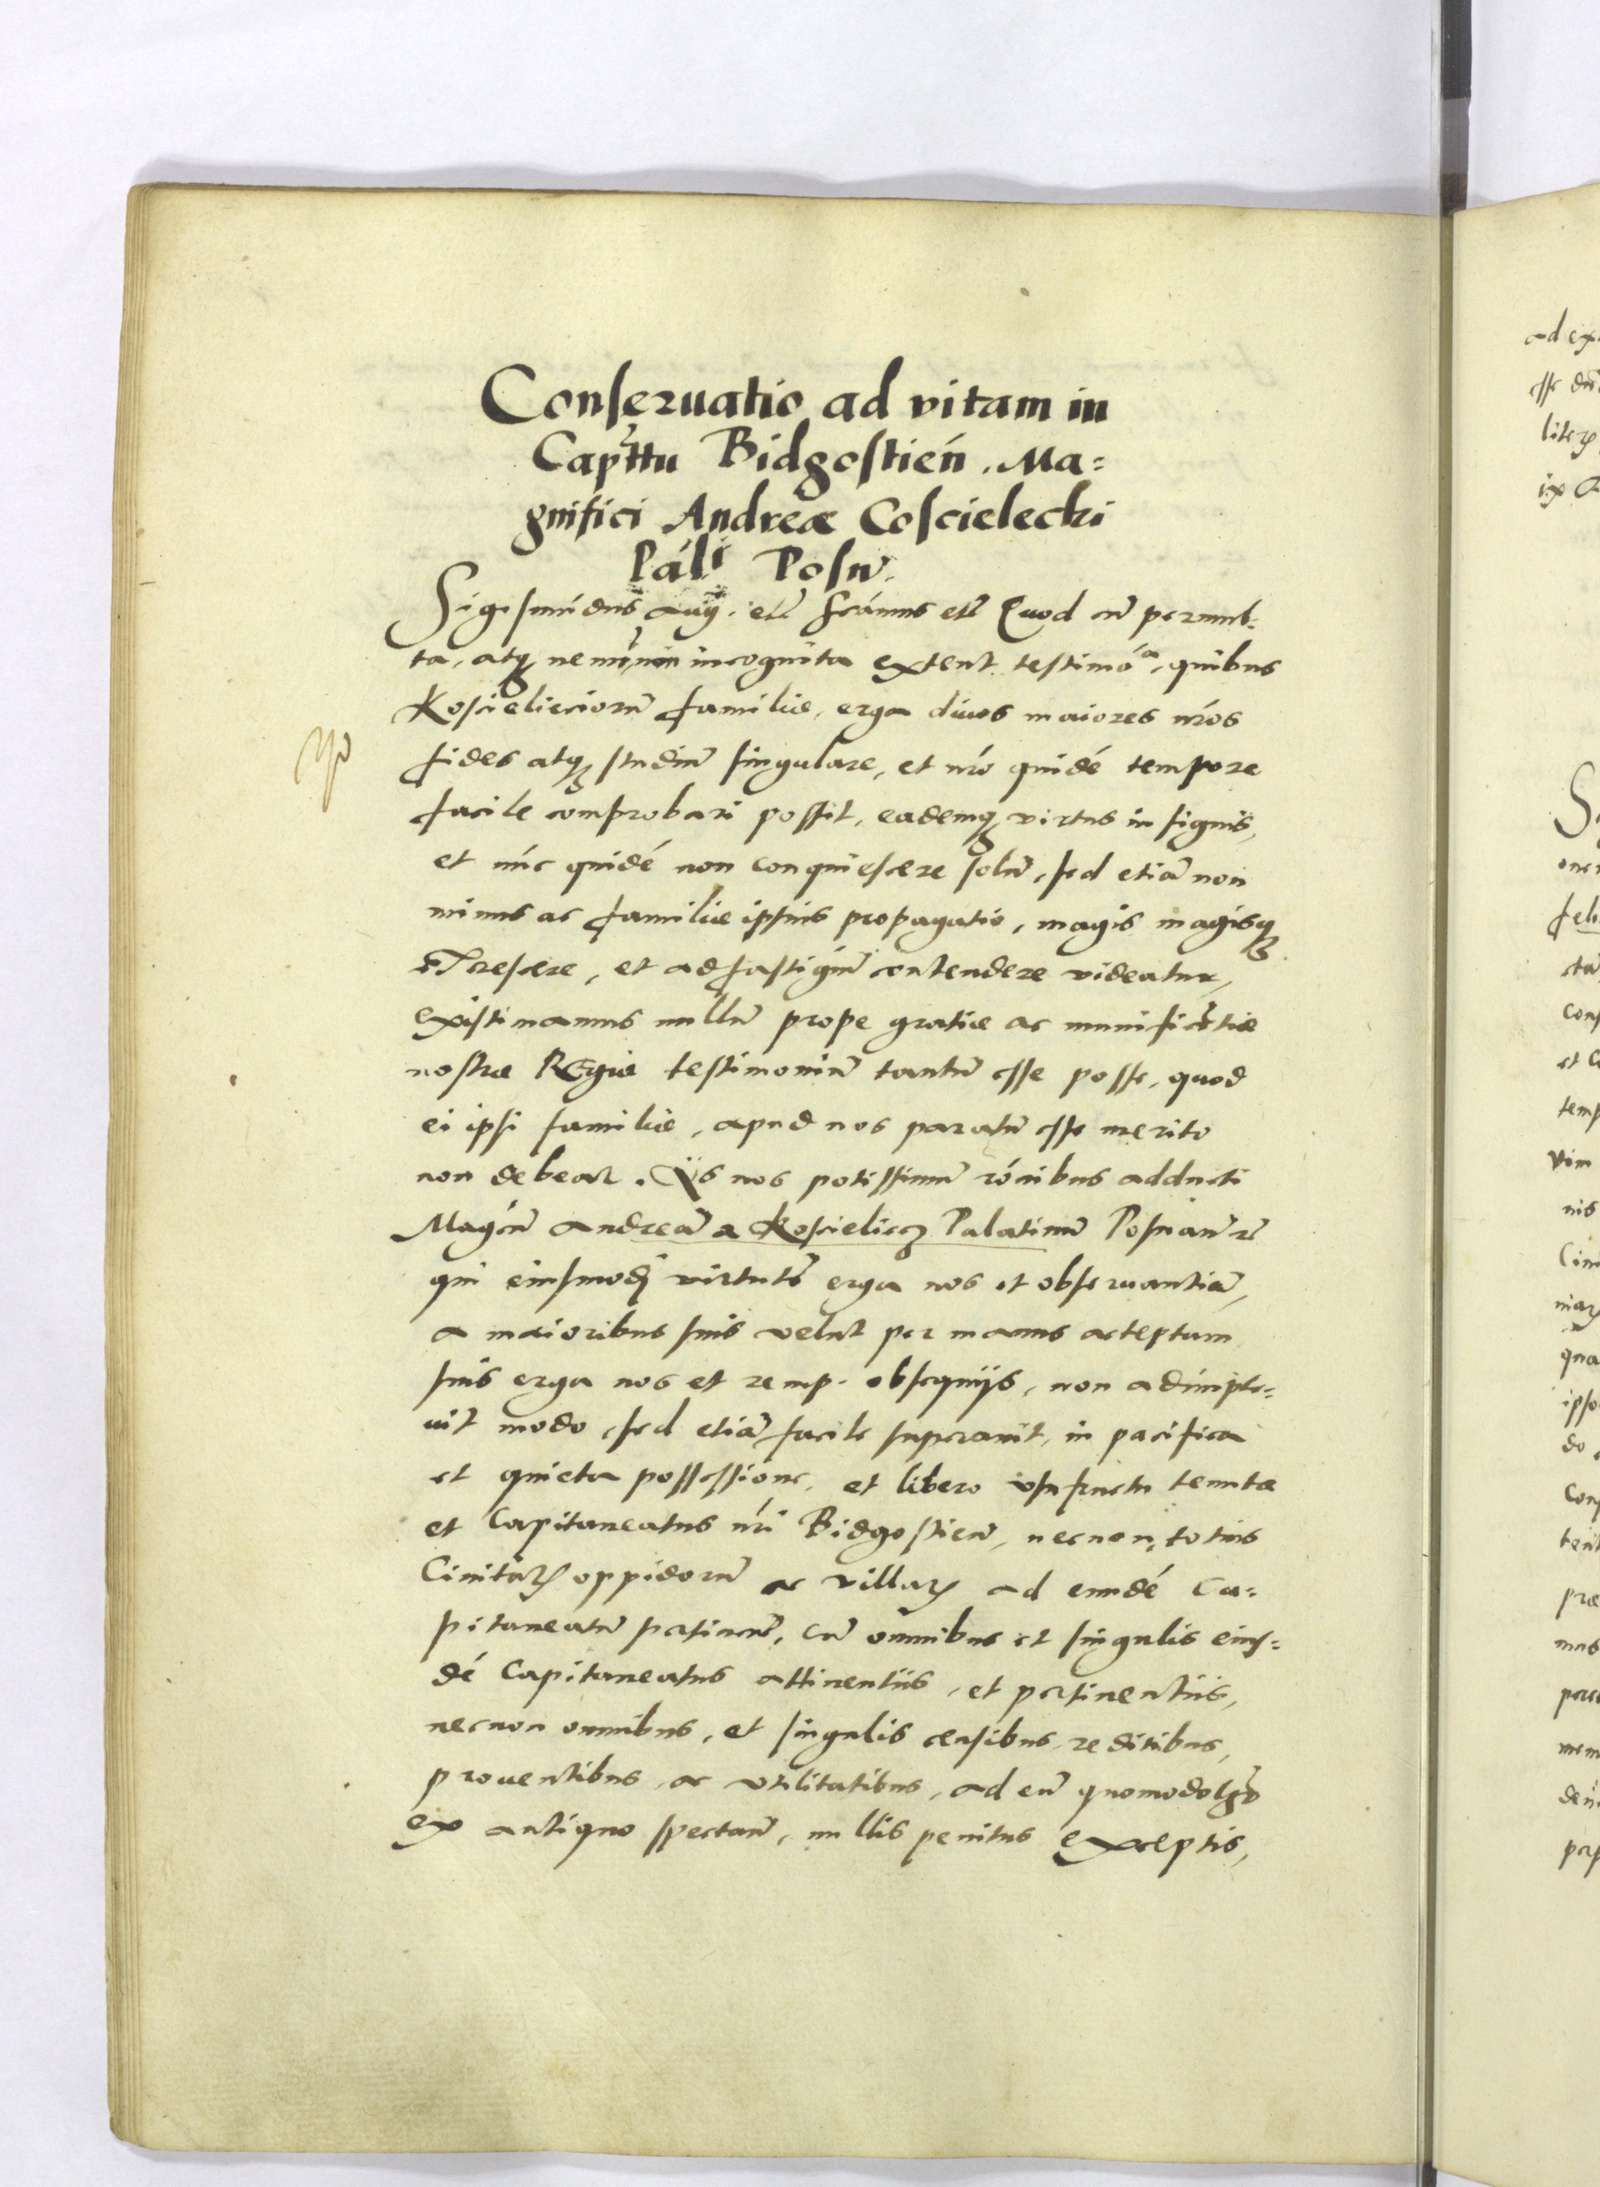 Conseruatio ad vitam in
Capittu Bidgostień. Ma=
gnifici Andreæ Coscielecki
Páli Posń.
Sigismúdus Aug. etc̃ scámus etc̃ Quod cũ permul=
ta, atq; nemini incognita extent testimóᵃ, quibus
Koscielieciorũ familiæ, erga diuos maiores nŕos
fides atq; studiũ singulare, et nŕo quidé tempore
facile comprobari possit, eademq; virtus insignis,
et núc quidé non conquiescere solũ, sed etiã non
minus ac familiæ ipsius propagatio, magis magisq;
crescere, et ad fastigiũ contendere videatur,
existimamus nullũ prope gratiæ ac munificẽtiæ
nostræ Regiæ testimoniũ tantũ esse posse, quod
ei ipsi familiæ, apud nos paratũ esse merito
non debeat. Iis nos potissimũ rónibus adducti
Magcũ Andreã a Koscieliecz Palatinũ Posnanẽ
qui eiusmodi virtutẽ erga nos et obseruantiã,
a maioribus suis velut per manus acceptam
suis erga nos et remp. obsequijs, non adimple=
uit modo, sed etiã facile superauit, in pacifica
et quieta possessione, et libero vsufructu tenutæ
et Capitaneatus nŕi Bidgostieñ, necnon totius
Ciuitatis oppidorũ ac villarũ ad eundé Ca=
pitaneatũ pertineñ, cũ omnibus et singulis eius=
dé Capitaneatus attinentiis, et pertinentiis,
necnon omnibus, et singulis censibus, reditibus,
prouentibus, ac vtilitatibus, ad eũ quomodolꝫ
ex antiquo spectañ, nullis penitus exceptis,